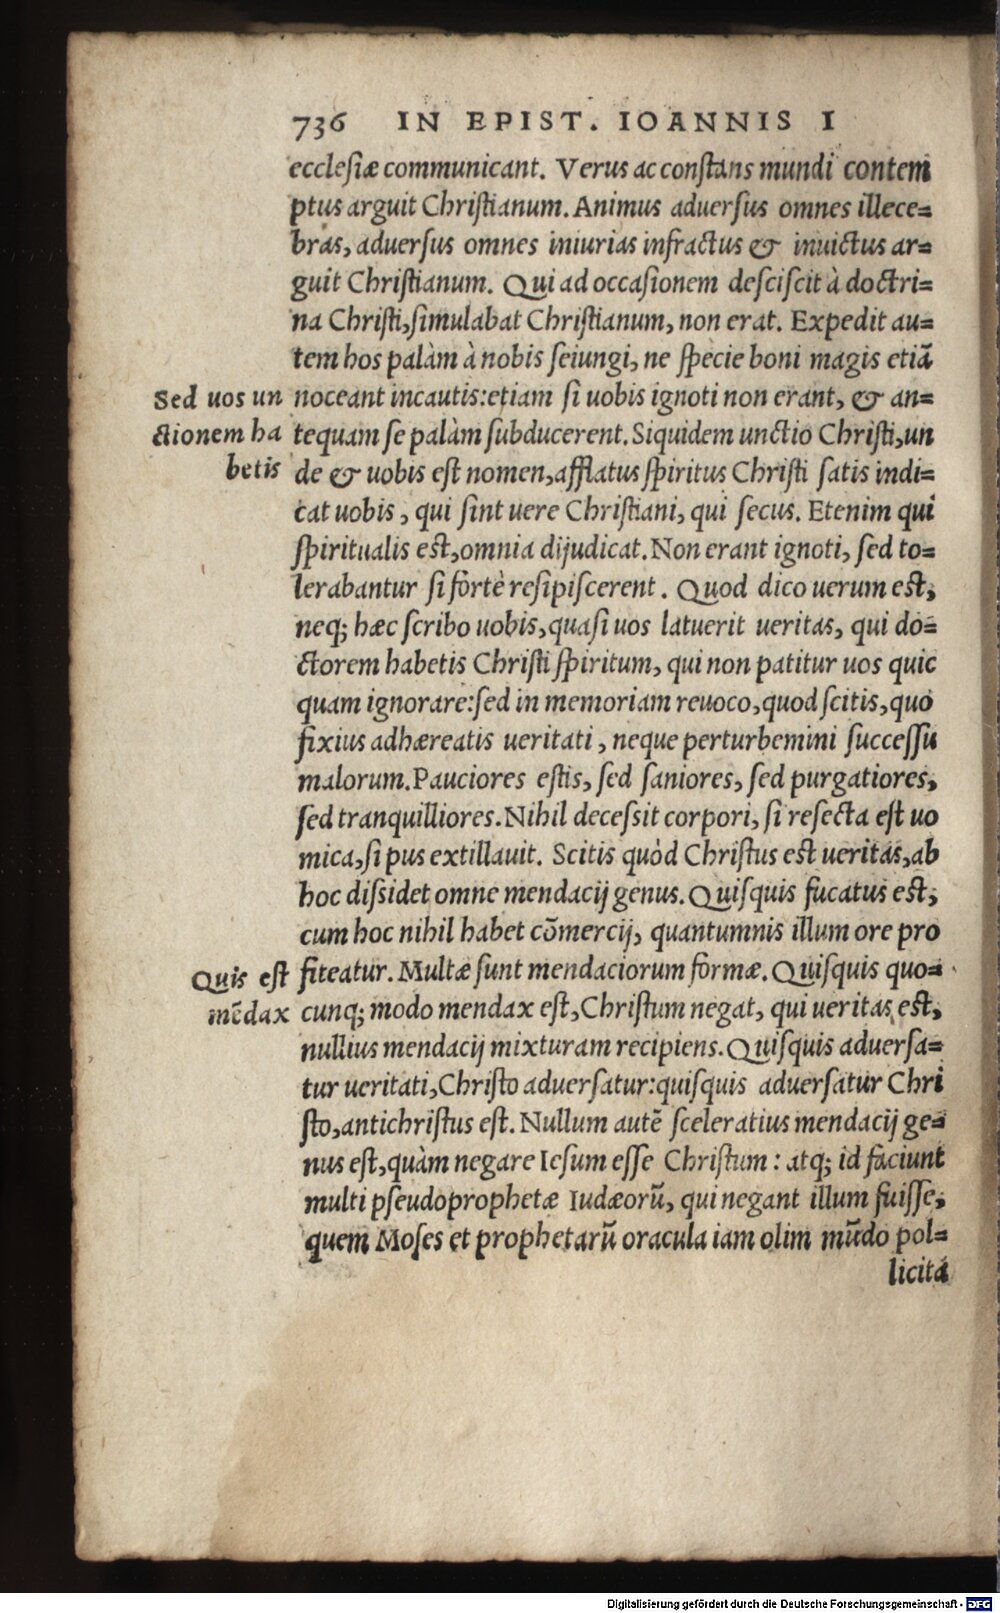 736 IN EPIST. IOANNIS I
ecclesiæ communicant. Verus ac constans mundi contem
ptus arguit Christianum. Animus aduersus omnes illece=
bras, aduersus omnes iniurias infractus & inuictus ar=
guit Christianum. Qui ad occasionem desciscit à doctri=
na Christi, simulabat Christianum, non erat. Expedit au=
tem hos palàm à nobis seiungi, ne specie boni magis etiã
Sed uos un noceant incautis: etiam si uobis ignoti non erant, & an=
ctionem ha tequam se palàm subducerent. Siquidem unctio Christi, un
betis de & uobis est nomen, afflatus spiritus Christi satis indi=
cat uobis, qui sint uere Christiani, qui secus. Etenim qui
spiritualis est, omnia dijudicat. Non erant ignoti, sed to=
lerabantur si fortè resipiscerent. Quod dico uerum est,
neq; hæc scribo uobis, quasi uos latuerit ueritas, qui do=
ctorem habetis Christi spiritum, qui non patitur uos quic
quam ignorare: sed in memoriam reuoco, quod scitis, quo
fixius adhæreatis ueritati, neque perturbemini successu
malorum. Pauciores estis, sed saniores, sed purgatiores,
sed tranquilliores. Nihil decessit corpori, si resecta est uo
mica, si pus extillauit. Scitis quòd Christus est ueritas, ab
hoc dissidet omne mendacij genus. Quisquis fucatus est,
cum hoc nihil habet cõmercij, quantumnis illum ore pro
Quis est fiteatur. Multæ sunt mendaciorum formæ. Quisquis quo=
mẽdax cunq; modo mendax est, Christum negat, qui ueritas est,
nullius mendacij mixturam recipiens. Quisquis aduersa=
tur ueritati, Christo aduersatur: quisquis aduersatur Chri
sto, antichristus est. Nullum autẽ sceleratius mendacij ge=
nus est, quàm negare Iesum esse Christum: atq; id faciunt
multi pseudoprophetæ Iudæorũ, qui negant illum fuisse,
quem Moses et prophetarũ oracula iam olim mũdo pol=
licita
Digitalisierung gefördert durch die Deutsche Forschungsgemeinschaft - DFG